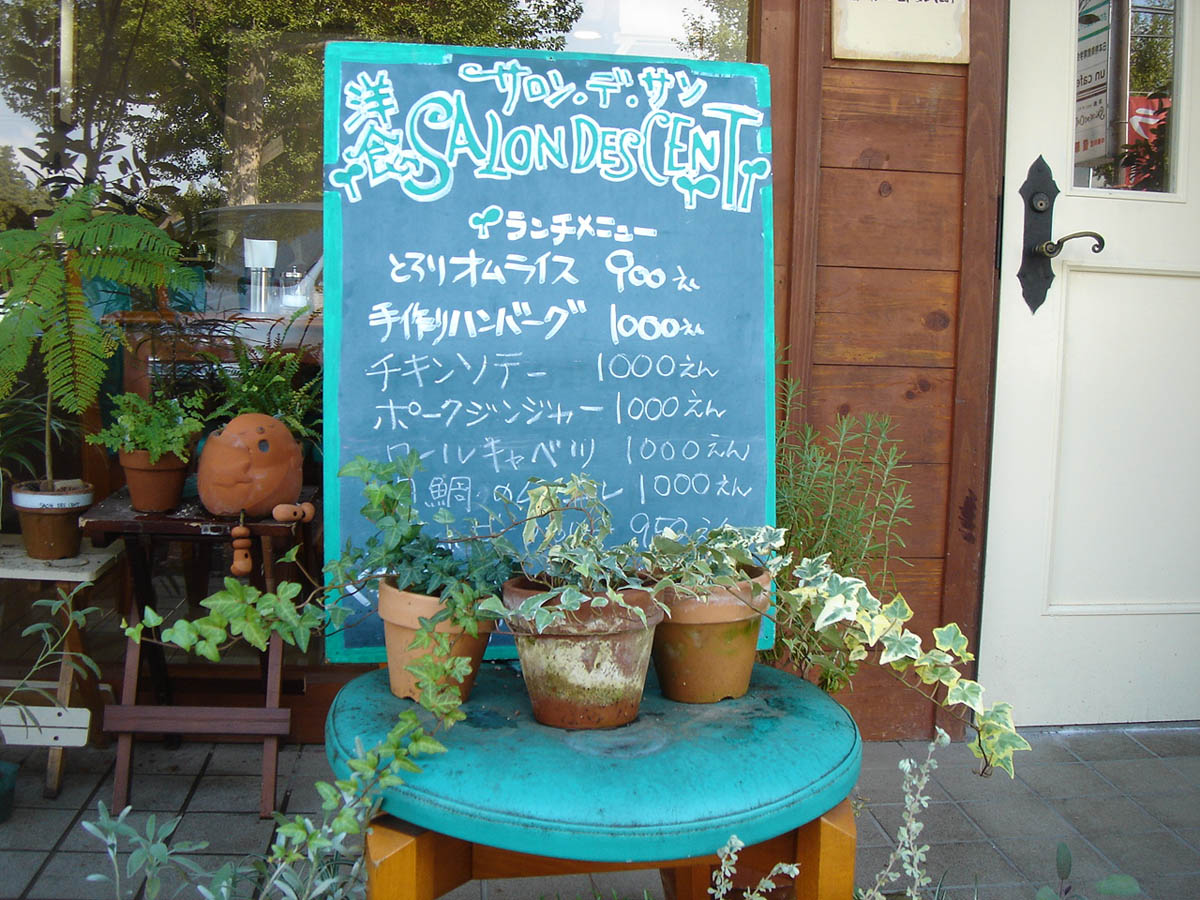 サロン・デ・サン
洋食の SALON DES CENT
ランチメニュー
とろりオムライス 900えん
手作りハンバーグ 1000えん
チキンソテー 1000えん
ポークジンジャー 1000えん
ロールキャベツ 1000えん
鯛の 1000えん
950えん
un cafe